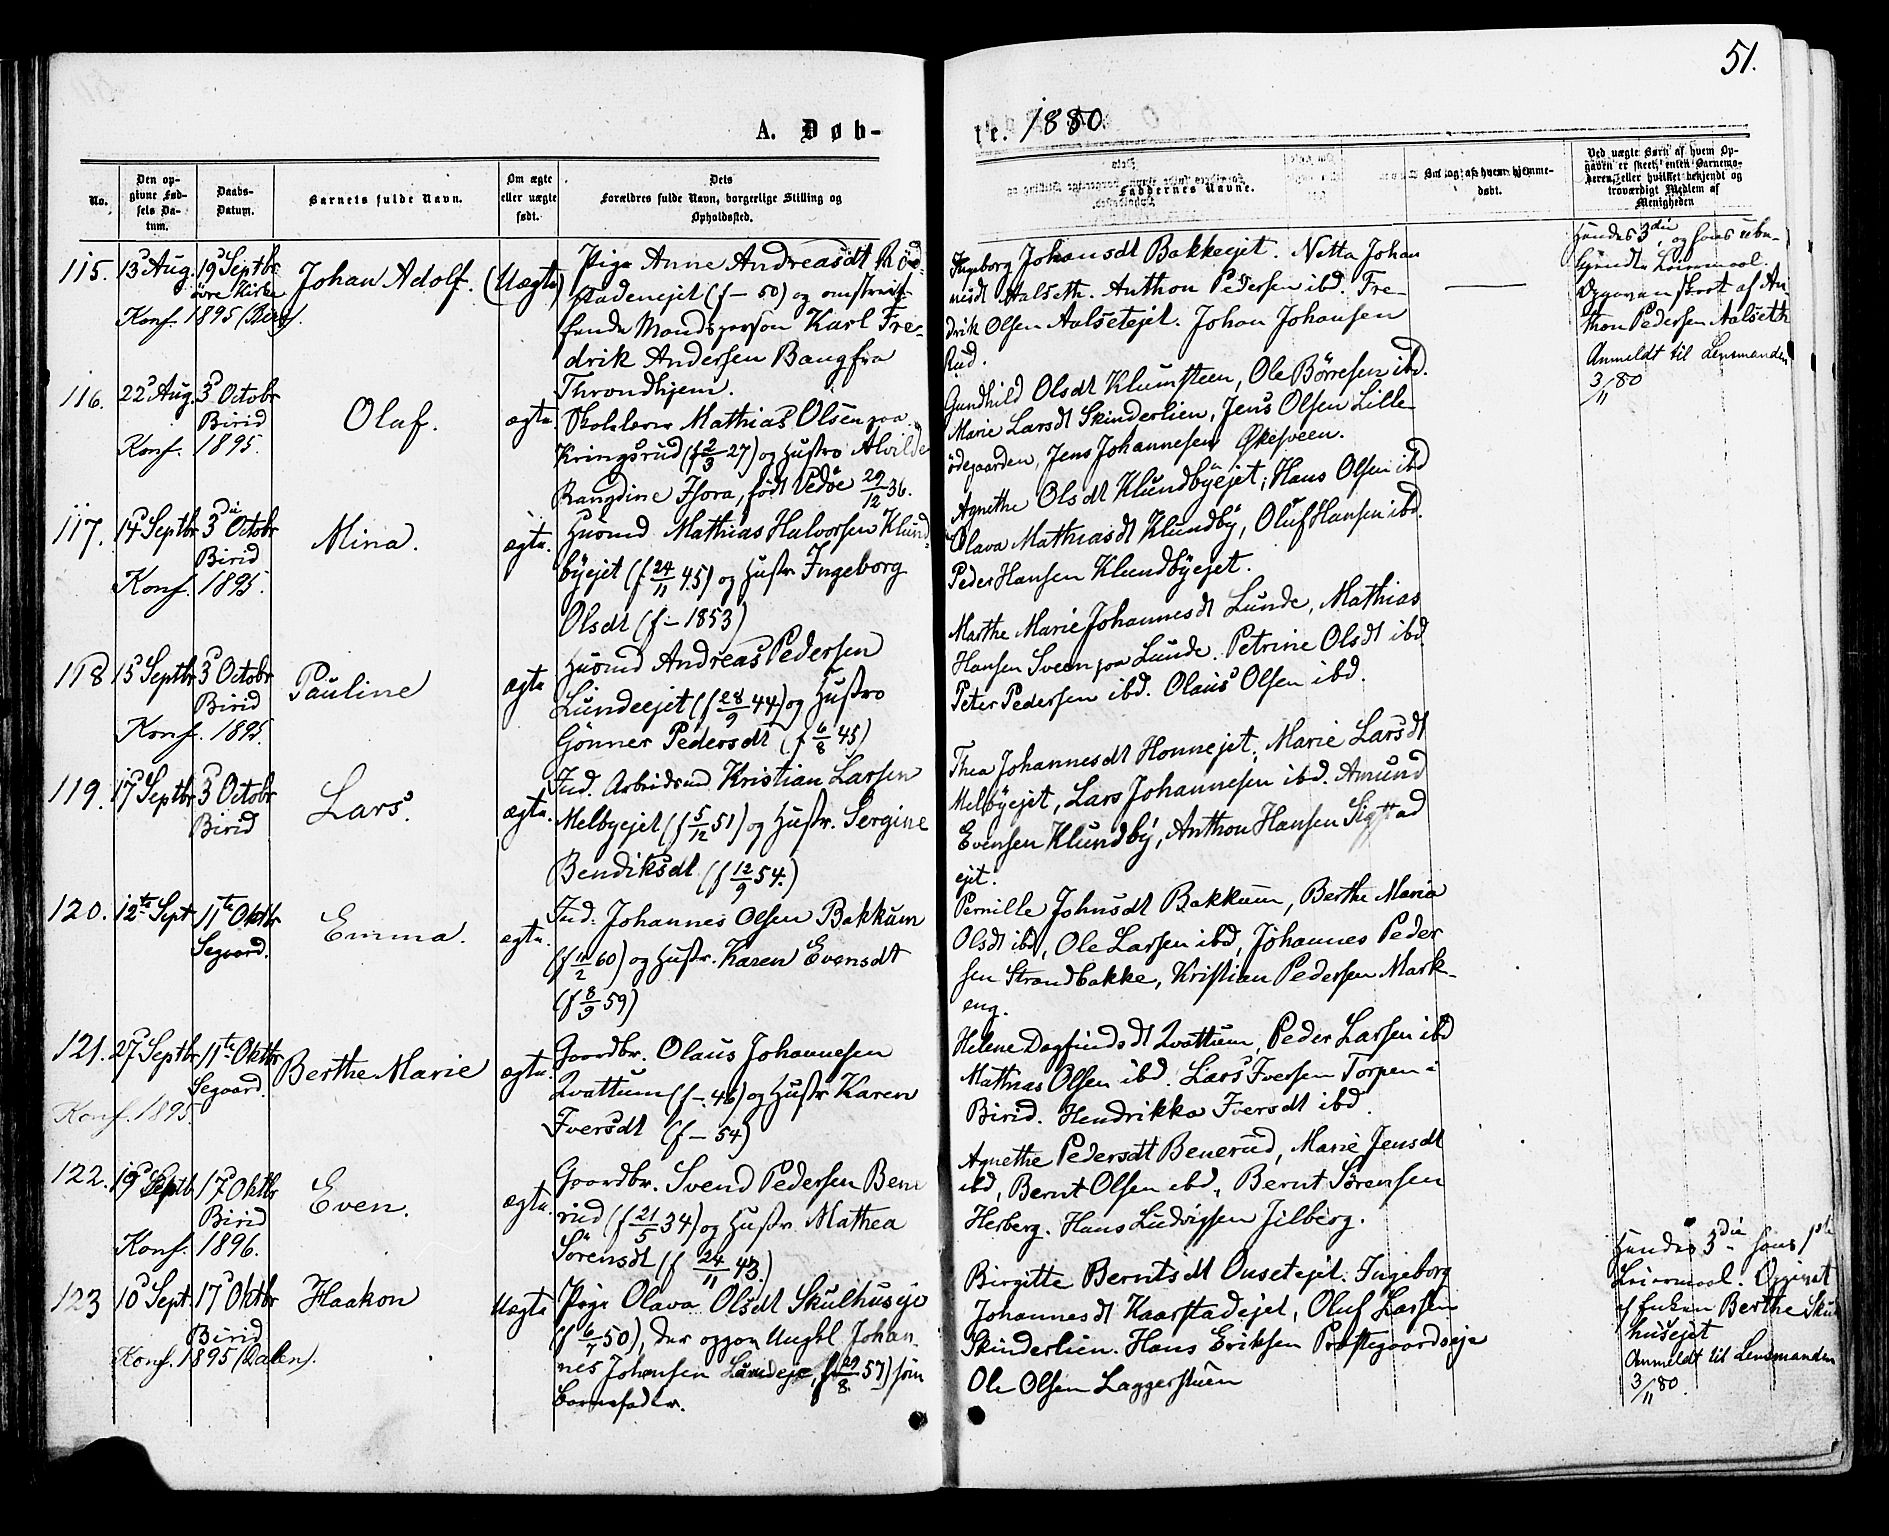 51.
A. Døb-
te. 1880.
No.
Den opgivne Fødsels Datum.
Daabs-Datum.
Barnets fulde Navn.
Om ægte eller uægte født.
Dets Forældres fulde Navn, borgerlige Stilling og Opholdssted.
Faddernes Navne.
Om og af hvem hjemmedøbt.
Ved uægte Børn af hvem Opgaven er skeet, enten Barnemoderen, eller hvilket bekjendt og troværdigt Medlem af Menigheden
115. 13d Aug. 19d Septbr
øvre Kirke
Konf. 1895 (Berg).
Johan Adolf. (Uægte)
Pige Anne Andreasdt Rød-
stadenejet (f – 50) og omstreif-
fende Mandsperson Karl Fre-
drik Andersen Bang fra
Throndhjem.
Ingeborg Johansdt Bakkeejet. Netta Johan
nesdt Aalseth. Anthon Pedersen ibd. Fre-
drik Olsen Aalsetejet. Johan Johansen
Rud.
Hendes 3die, og hans ube-
kjendte Leiermaal.
Opgaven skeet af An-
thon Pedersen Aalseth
Anmeldt til Lensmanden
3/11 80
116. 22d Aug. 3d Octobr
Birid
Konf. 1895.
Olaf.
ægte.
Skolelærer Mathias Olsen paa
Kringsrud (f 2/3 27) og Hustro Alvilde
Rangdine Thora, født Vedøe 29/12 36.
Gundhild Olsdt Klumsteen, Ole Børresen ibd.
Marie Larsdt Skinderlien, Jens Olsen Lille-
ødegaarden, Jens Johannesen Økesveen.
117. 14d Septbr 3die Octobr
Birid
Konf. 1895.
Mina.
ægte.
Huusmd Mathias Halvorsen Klund-
byejet (f 24/11 45) og Hustr. Ingeborg
Olsdt (f – 1853)
Agnethe Olsdt Klundbyejet, Hans Olsen ibd
Olava Mathiasdt Klundby, Oluf Hansen ibd.
Peder Hansen Klundbyejet.
118 15d Septbr 3d Octobr
Birid
Konf. 1895.
Pauline
ægte
Huusmd Andreas Pedersen
Lundeejet (f 28/9 44) og Hustro
Gønner Pedersdt (f 6/8 45)
Marthe Marie Johannesdt Lunde, Mathias
Hansen Sveen paa Lunde. Petrine Olsdt ibd.
Peter Pedersen ibd. Olaus Olsen ibd.
119. 17d Septbr 3d Octobr
Birid
Lars.
ægte.
Ind. Arbeidsmd Kristian Larsen
Melbyejet (f 5/12 51) og Hustr. Sergine
Bendiksdt. (f 12/9 54.)
Thea Johannesdt Honnejet, Marie Larsdt
Melbyejet, Lars Johannesen ibd. Amund
Evensen Klundby, Anthon Hansen Sigstad
ejet.
120. 12te Sept 11te Oktbr
Segaard.
Emma.
ægte.
Ind. Johannes Olsen Bakkum
(f 11/2 60) og Hustr. Karen Evensdt
(f 8/9 59)
Pernille Johnsdt Bakkum, Berthe Maria
Olsdt ibd, Ole Larsen ibd, Johannes Peder
sen Strandbakke, Kristian Pedersen Mark-
eng.
121. 27d Septbr 11te Oktbr
Segaard.
Konf. 1895.
Berthe Marie
ægte.
Gaardbr. Olaus Johannesen
Qvattum (f –. 46) og Hustr Karen
Iversdt (f – 54)
Helene Dagfindsdt Qvattum, Peder Larsen ibd
Mathias Olsen ibd. Lars Iversen Torpen i
Birid. Hendrikka Iversdt ibd.
122. 19d Septb 17d Oktbr
Birid
Konf. 1896.
Even.
ægte.
Gaardbr. Svend Pedersen Bene
rud (f 21/5 34) og Hustr. Mathea
Sørensdt (f 24/11 43.)
Agnethe Pedersdt Benerud, Marie Jensdt
ibd, Bernt Olsen ibd, Bernt Sørensen
Herberg. Hans Ludvigsen Jilberg.
123 10d Sept. 17d Oktbr
Birid
Konf. 1895 (Dalen).
Haakon
Uægte
Pige Olava Olsdt Skulhuseje
(f 6/7 50), der opgav Ungkl Johan-
nes Johansen Lundeje, f 29/8 57) som
barnefader.
Birgitte Berntsdt Onsetejet. Ingeborg
Johannesdt Kaarstadejet, Oluf Larsen
Skinderlien. Hans Eriksen Præstegaardseje
Ole Olsen Laggerstuen
Hendes 3die hans 1ste
Leiermaal. Opgivet
af Enken Berthe Skul
husejet
Anmeldt til Lensmanden
3/11 80.